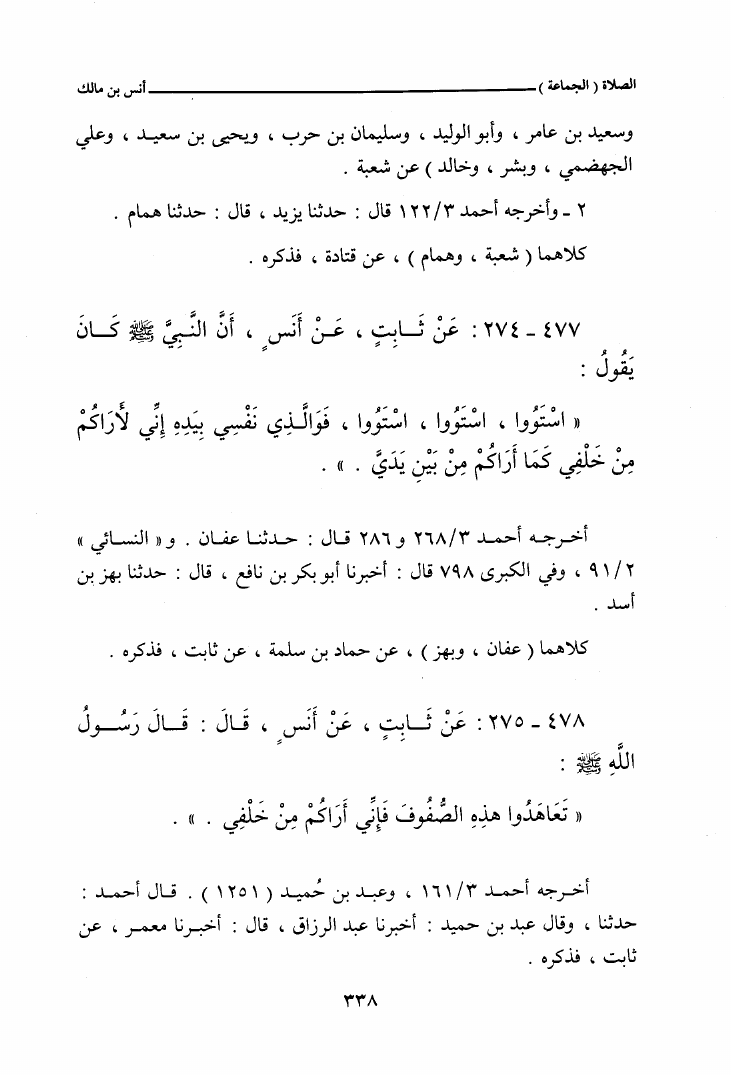 الصلاة ( الجماعة ) ــــــــــــ أنس بن مالك
وسعيد بن عامر ، وأبو الوليد ، وسليمان بن حرب ، ويحيى بن سعيد ، وعلي
الجهضمي ، وبشر ، وخالد ) عن شعبة .
٢ ـ وأخرجه أحمد ١٢٢/٣ قال : حدثنا يزيد ، قال : حدثنا همام .
كلاهما ( شعبة ، وهمام ) ، عن قتادة ، فذكره .
٤٧٧ ـ ٢٧٤ : عَنْ ثَـابِتٍ ، عَـنْ أَنَسٍ ، أَنَّ النَّـبِيَّ ﷺ كَـانَ
يَقُولُ :
« اسْتَوُوا ، اسْتَوُوا ، اسْتَوُوا ، فَوَالَّـذِي نَفْسِي بِيَدِهِ إِنِّي لَأَرَاكُمْ
مِنْ خَلْفِي كَمَا أَرَاكُمْ مِنْ بَيْنِ يَدَيَّ . » .
أخـرجـه أحمـد ٢٦٨/٣ و ٢٨٦ قـال : حـدثنـا عفـان . و« النسـائي »
٩١/٢ ، وفي الكبرى ٧٩٨ قال : أخبرنا أبو بكر بن نافع ، قال : حدثنا بهز بن
أسد .
كلاهما ( عفان ، وبهز ) ، عن حماد بن سلمة ، عن ثابت ، فذكره .
٤٧٨ ـ ٢٧٥ : عَنْ ثَـابِتٍ ، عَنْ أَنَسٍ ، قَـالَ : قَـالَ رَسُـولُ
اللَّهِ ﷺ :
« تَعَاهَدُوا هذِهِ الصُّفُوفَ فَإِنِّي أَرَاكُمْ مِنْ خَلْفِي . » .
أخـرجه أحمـد ١٦١/٣ ، وعبـد بن حُميد ( ١٢٥١ ) . قـال أحمـد :
حدثنا ، وقال عبد بن حميد : أخبرنا عبد الرزاق ، قال : أخبـرنا معمـر ، عن
ثابت ، فذكره .
٣٣٨